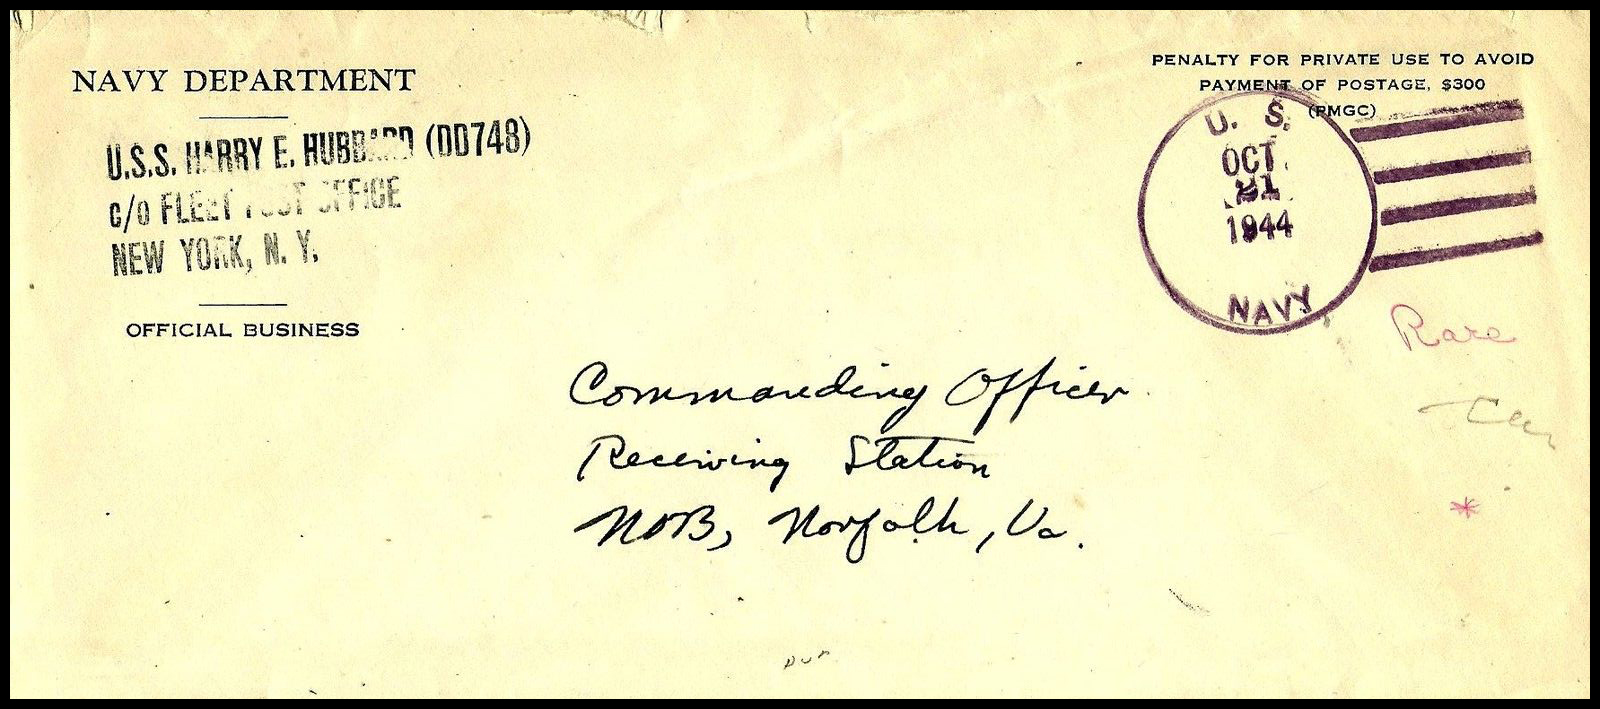 NAVY DEPARTMENT
U.S.S. HARRY E. HUBBARD (DD748)
c/o FLEET POST OFFICE
NEW YORK, N. Y.
OFFICIAL BUSINESS
PENALTY FOR PRIVATE USE TO AVOID
PAYMENT OF POSTAGE, $300
(PMGC)
U. S.
OCT.
21
1944
NAVY
Rare
Commanding Officer
Receiving Station
NOB, Norfolk, Va.
*